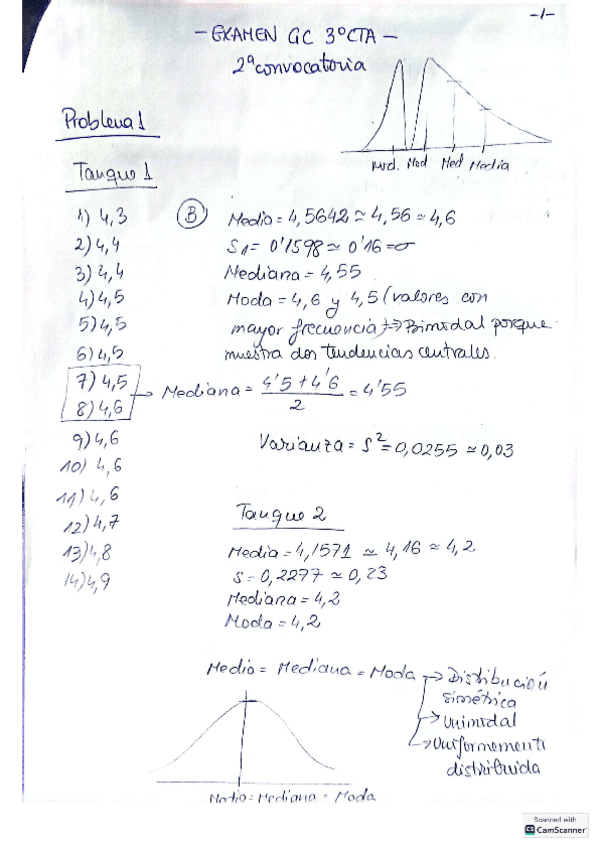 -1-
- EXAMEN GC 3º CTA -
2ª convocatoria
Problema 1
Mod. Mod Med Media
Tanque 1
1) 4,3
2) 4,4
3) 4,4
4) 4,5
5) 4,5
6) 4,5
7) 4,5
8) 4,6
9) 4,6
10) 4,6
11) 4,6
12) 4,7
13) 4,8
14) 4,9
B
Media = 4,5642 ≃ 4,56 ≃ 4,6
S1 = 0'1598 ≃ 0'16 = σ
Mediana = 4,55
Moda = 4,6 y 4,5 (valores con
mayor frecuencia) → Bimodal porque
muestra dos tendencias centrales.
→ Mediana = 4'5 + 4'6 / 2 = 4'55
Varianza = S² = 0,0255 ≃ 0,03
Tanque 2
Media = 4,1571 ≃ 4,16 ≃ 4,2
S = 0,2277 ≃ 0,23
Mediana = 4,2
Moda = 4,2
Media = Mediana = Moda → Distribución
simétrica
→ Unimodal
→ Uniformemente
distribuida
Media = Mediana = Moda
Scanned with
CS CamScanner